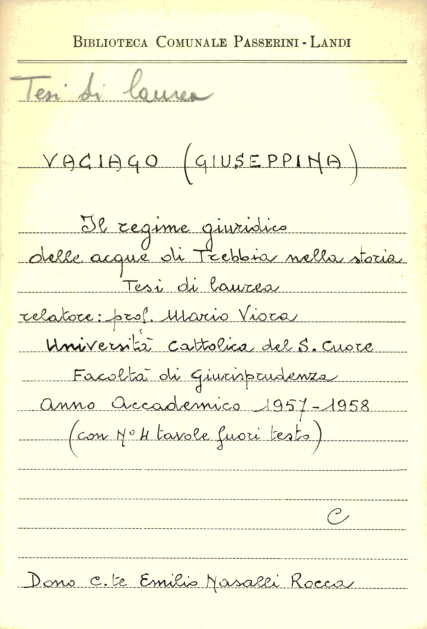 BIBLIOTECA COMUNALE PASSERINI - LANDI
Tesi di laurea
VACIAGO (GIUSEPPINA)
Il regime giuridico
delle acque di Trebbia nella storia
Tesi di laurea
relatore: prof. Mario Viora
Università Cattolica del S. Cuore
Facoltà di Giurisprudenza
Anno Accademico 1957-1958
(con N° 4 tavole fuori testo)
C
Dono C.te Emilio Nasalli Rocca